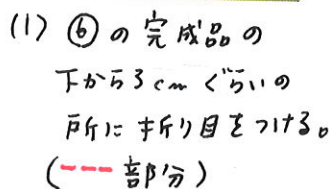 (1) ⑥の完成品の
下から3cmぐらいの
所に折り目をつける。
(--- 部分)